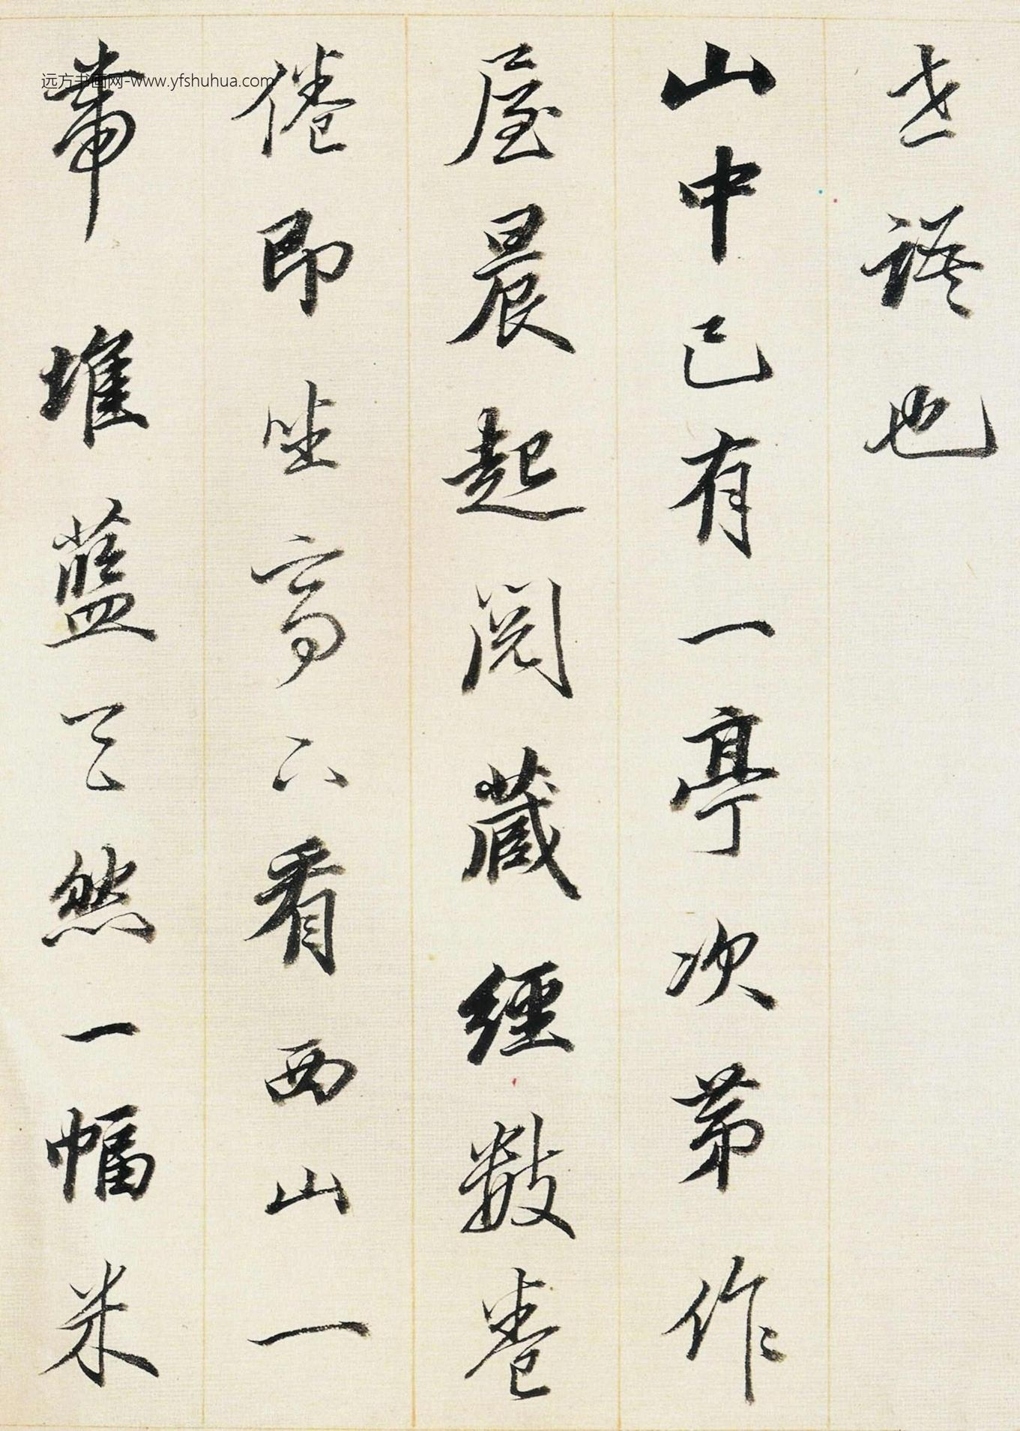 也
山中已有一亭次第作
屋晨起閱藏經數卷
倦即坐亭下看西山一
帶堆藍天然一幅米
远方书画网-www.yfshuhua.com